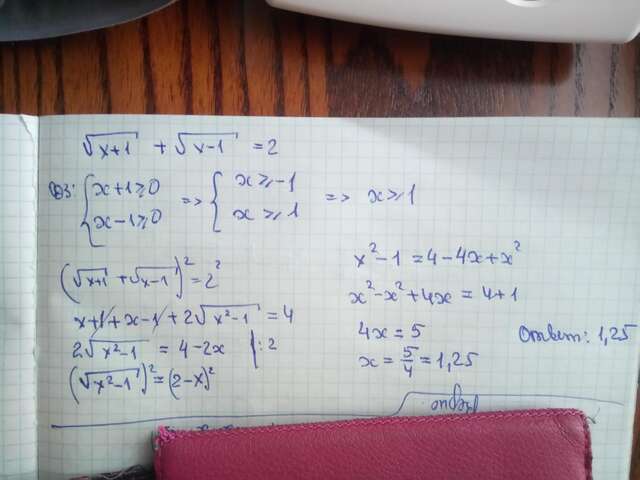 √x+1 + √x-1 = 2
ОДЗ: { x+1≥0 => { x≥-1 => x≥1
{ x-1≥0 { x≥1
(√x+1 + √x-1)² = 2²
x+1+x-1+2√x²-1 = 4
2√x²-1 = 4-2x |:2
(√x²-1)² = (2-x)²
x²-1 = 4-4x+x²
x²-x²+4x = 4+1
4x = 5
x = 5/4 = 1,25
Ответ: 1,25